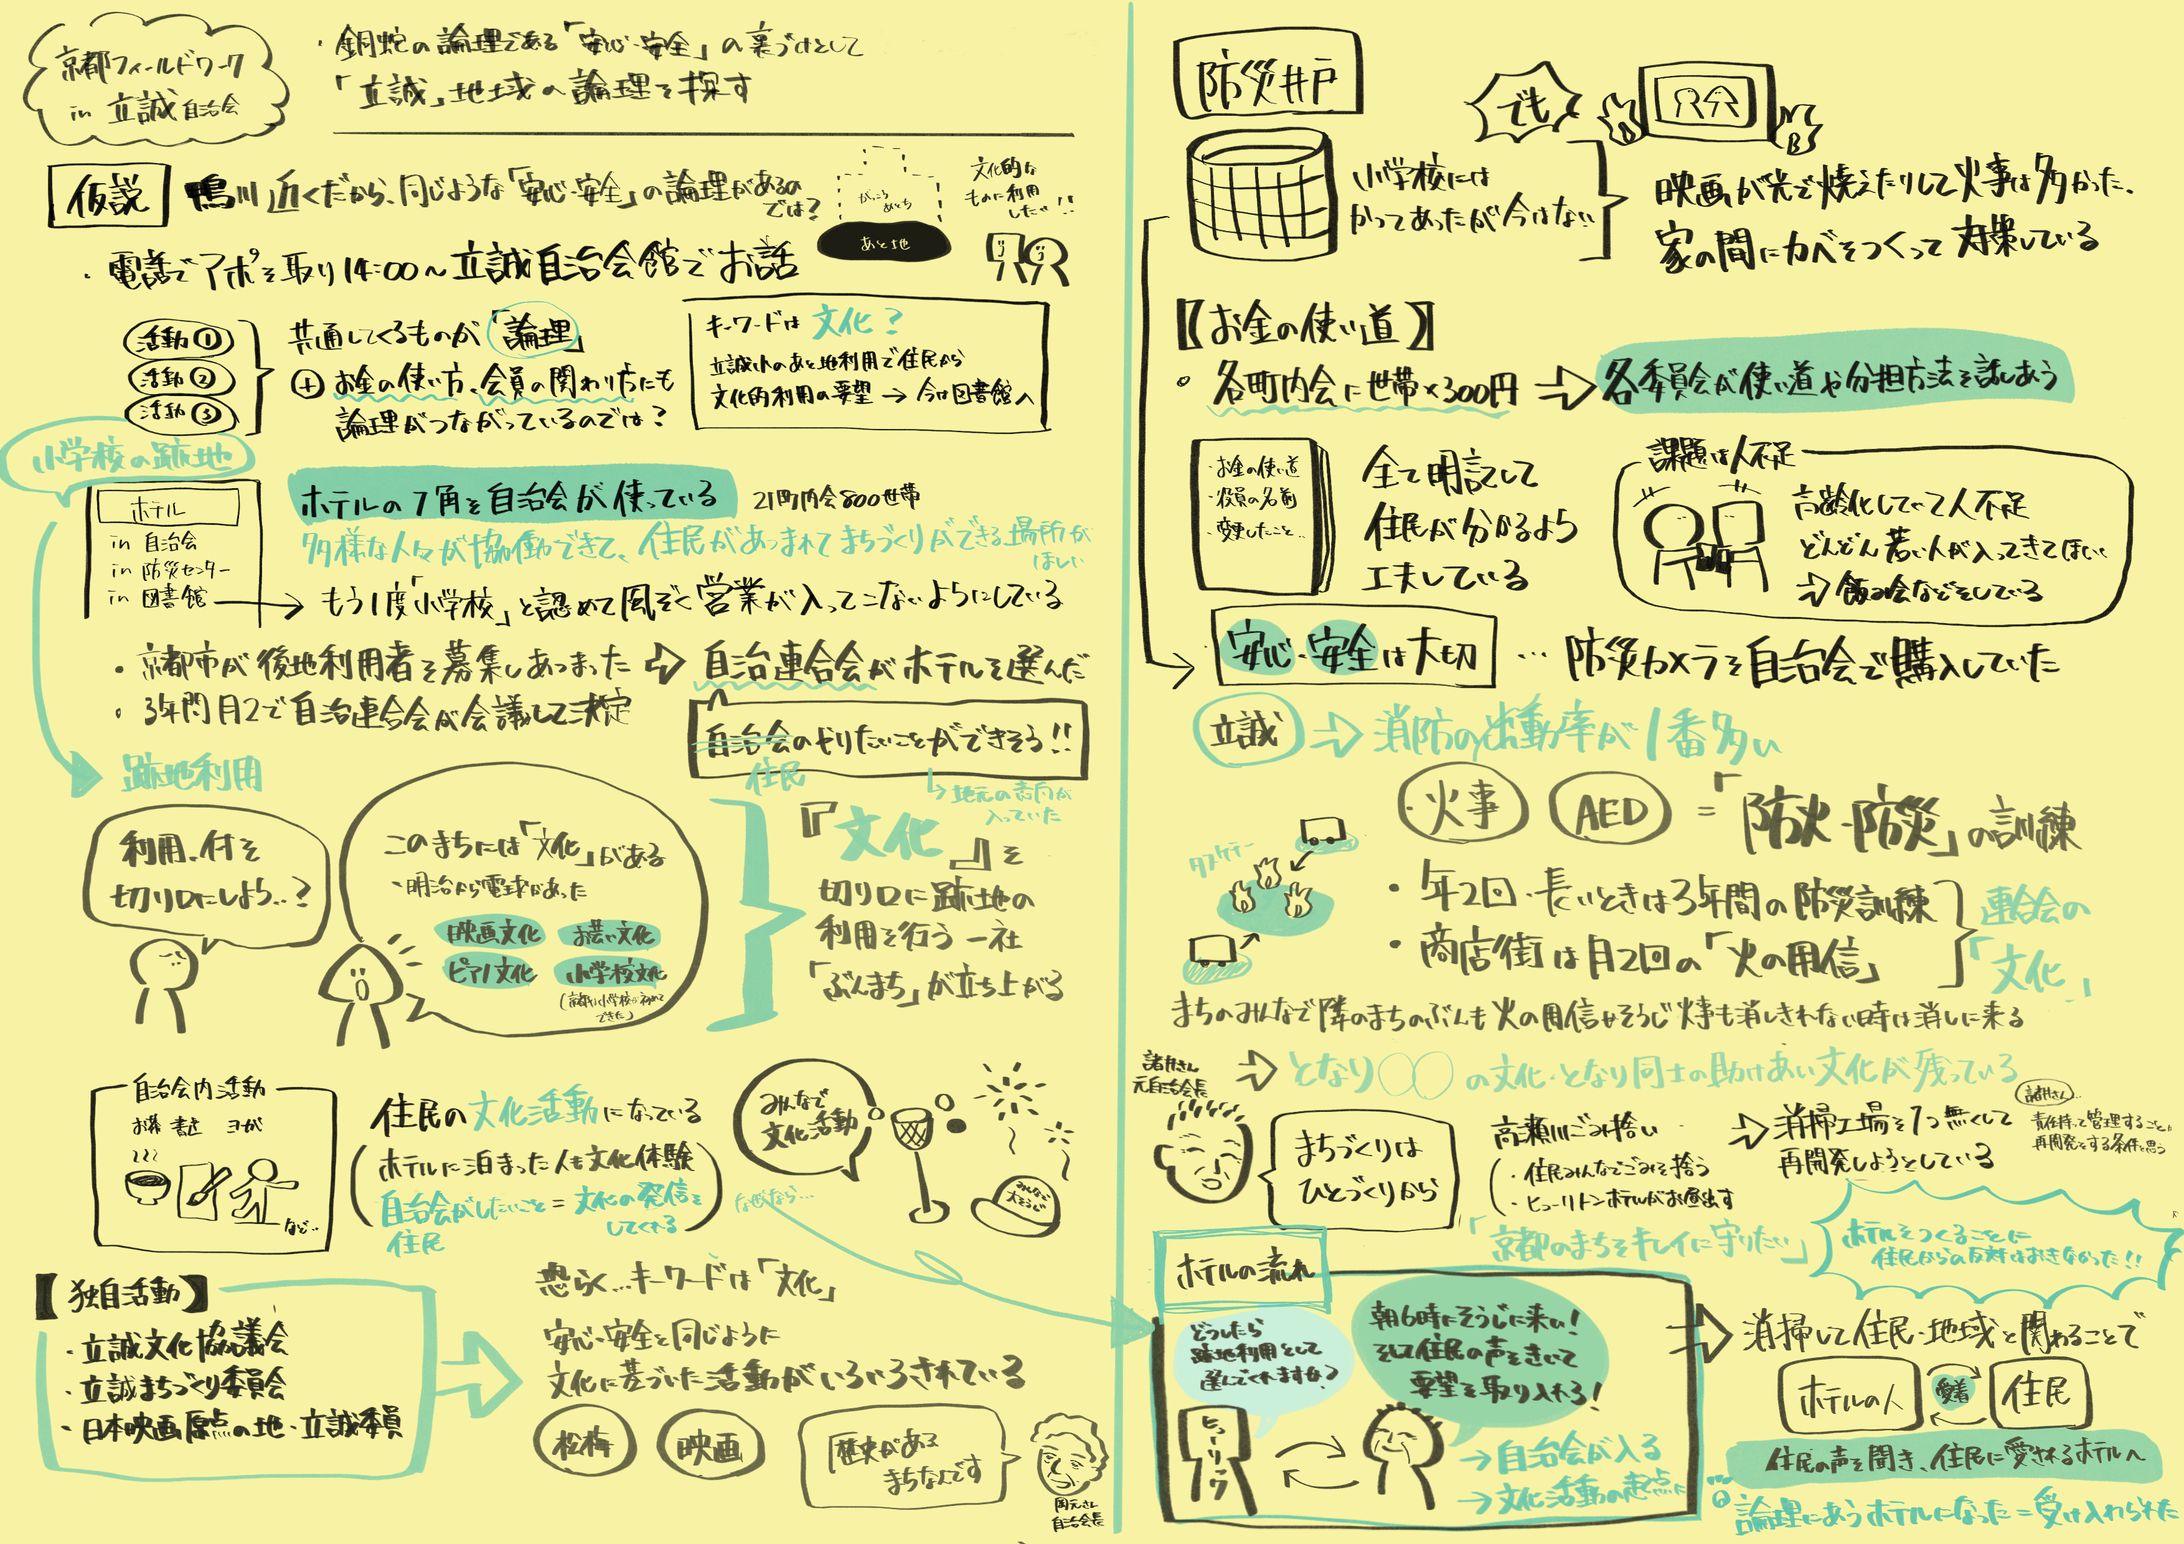 京都フィールドワーク
in 立誠自治会
・銅蛇の論理である「安心・安全」の裏づけとして
「立誠」地域の論理を探す
仮説
鴨川近くだから、同じような「安心・安全」の論理があるの
では？
がっこう
あとち
あと地
文化的な
ものに利用
したい!!
・電話でアポを取り14:00〜立誠自治会館でお話
活動①
活動②
活動③
共通してくるものが「論理」
⊕ お金の使い方、会員の関わり方にも
論理がつながっているのでは？
キーワードは 文化？
立誠小のあと地利用で住民から
文化的利用の要望 → 今は図書館へ
小学校の跡地
ホテル
in 自治会
in 防災センター
in 図書館
ホテルの1角を自治会が使っている
21町内会800世帯
多様な人々が協働できて、住民があつまれてまちづくりができる場所が
ほしい
もう1度「小学校」と認めて風ぞく営業が入ってこないようにしている
・京都市が後地利用者を募集しあつまった ⇨ 自治連合会がホテルを選んだ
・3年間月2で自治連合会が会議して決定
自治会のやりたいことができそう!!
住民
↳ 地元の意向が
入っていた
跡地利用
利用、付を
切り口にしよう..？
このまちには「文化」がある
・明治から電球があった
映画文化 お芸い文化
ピアノ文化 小学校文化
できた」
『文化』を
切り口に跡地の
利用を行う一社
「ぶんまち」が立ち上がる
自治会内活動
お茶 書道 ヨガ
など..
住民の文化活動になっている
ホテルに泊まった人も文化体験
自治会がしたいこと＝文化の発信を
してくれる
住民
みんなで
文化活動
なぜなら...
みんなで
【独自活動】
・立誠文化協議会
・立誠まちづくり委員会
・日本映画原点の地・立誠委員
恐らく...キーワードは「文化」
安心・安全と同じように
文化に基づいた活動がいろいろされている
松梅
映画
歴史がある
まちなんです
岡元さん
自治会長
防災井戸
小学校には
かつてあったが今はない
でも
映画が光で燃えたりして火事は多かった、
家の間にカベをつくって対策している
【お金の使い道】
・各町内会に世帯×300円 ⇨ 各委員会が使い道や分担方法を話しあう
・お金の使い道
・役員の名前
・変更したこと..
全て明記して
住民が分かるよう
工夫している
課題は人不足
高齢化してて人不足
どんどん若い人が入ってきてほしい
⇨飲み会などをしている
安心・安全は大切 … 防災カメラを自治会で購入していた
立誠 ⇨ 消防の出動率が1番多い
・火事 AED ＝「防火・防災」の訓練
タスケテー
・年2回・長いときは3年間の防災訓練
・商店街は月2回の「火の用信」
連合会の
「文化」
まちのみんなで隣のまちのぶんも火の用信やそうじ火事も消しきれない時は消しに来る
⇨ となり○○の文化・となり同士の助けあい文化が残っている
諸井さん
元自治会長
まちづくりは
ひとづくりから
高瀬川ごみ拾い
・住民みんなでごみを拾う
・ヒューリックホテルがお昼出す
⇨ 消掃工場を1つ無くして
再開発しようとしている
諸井さん..
責任持って管理すること
再開発をする条件と思う
「京都のまちをキレイに守りたい」
ホテルをつくることに
住民からの反対はおきなかった!!
ホテルの流れ
どうしたら
跡地利用として
選んでくれますか？
朝6時にそうじに来い！
そして住民の声をきいて
要望を取り入れろ！
ヒューリック
→自治会が入る
→文化活動の起点に
⇨ 消掃して住民・地域と関わることで
ホテルの人
愛着
住民
住民の声を聞き、住民に愛されるホテルへ
論理にあうホテルになった＝受け入れられた